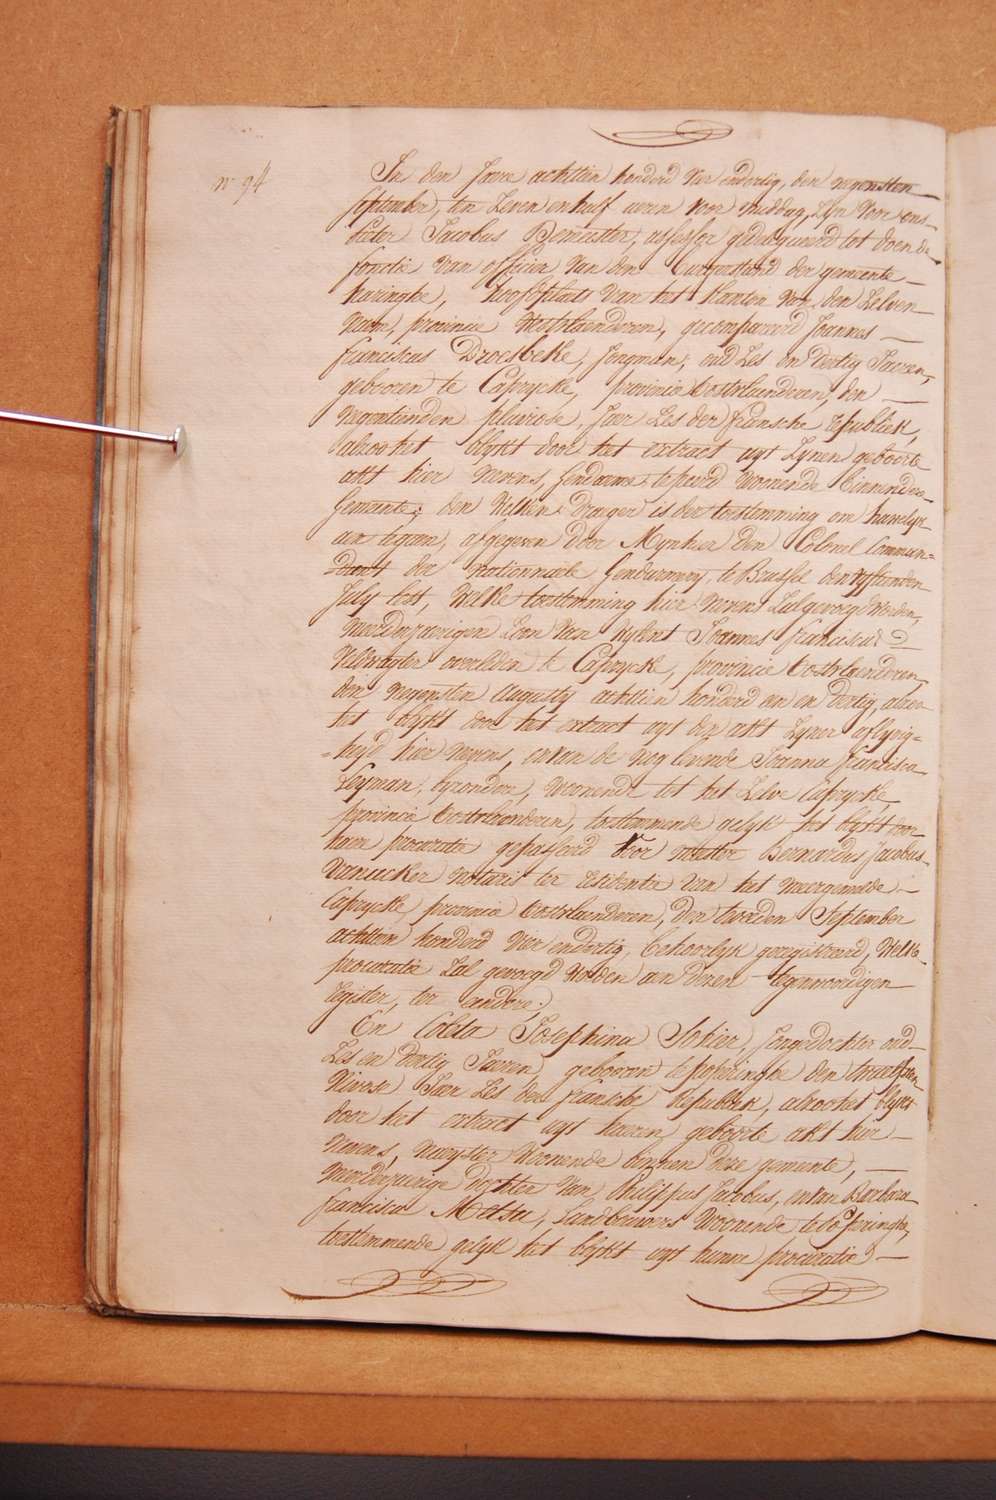 n° 94
In den Jaere achttien honderd vier endertig, den negensten
September, ten zeven en half ueren voor middag, zijn voor ons
Pieter Jacobus Demeester, assessor gedelegueerd tot doen de
fonctie van officier van den burgerstand der gemeente
haringhe, hoofdplaets van het kanton van den zelven
naem, provincie Westvlaenderen, gecompareerd Joannes
franciscus Droesbeke, Jongman, oud zes en dertig Jaeren,
gebooren te Caprycke, provincie Oostvlaenderen, den
negentienden pluviose, Jaer zes der fransche republiek,
alzoo het blykt door het extract uyt zynen geboorte
akt hier nevens, Gendarme te peerd woonende binnen deze
Gemeente; den welken drager is der toestemming om houwelyk
aen te gaen, afgegeven door Mynheer den Colonel Comman=
dant der nationnaele Gendarmery, te Brussel den vyftienden
July lest, welke toestemming hier nevens zal gevoegd worden,
meerderjaerigen zoon van wylent Joannes franciscus
veldwagter overleden te Caprycke, provincie Oostvlaenderen,
den negensten Augusty achttien honderd een en dertig, alzoo
het blykt door het extract uyt den akt zyner aflyvig=
=heyd hier nevens, en van de nog levende Joanna francisca
Leyman, byzondere, woonende tot het zelve Caprycke,
provincie Oostvlaenderen, toestemmende gelyk het blykt door
haere procuratie gepasseerd voor meester Bernardus Jacobus
notaris ter residentie van het meergemelde
Caprycke, provincie Oostvlaenderen, den tweeden September
achttien honderd vier endertig, behoorlyk geregistreerd, welke
procuratie zal gevoegd worden aen dezen tegenwoordigen
register, ter eendere;
En Coleta Josephina Sohier, Jonge dochter oud
zes en dertig Jaeren, gebooren te poperinghe den twaelfsten
Nivose Jaer zes der fransche republiek, alzoo het blykt
door het extract uyt haeren geboorte akt hier
nevens, naeyster woonende binnen deze gemeente,
meerderjaerige dochter van Philippus Jacobus, en van Barbara
francisca Metsu, Landbouwers woonende te poperinghe,
toestemmende gelyk het blykt uyt hunne procuratie